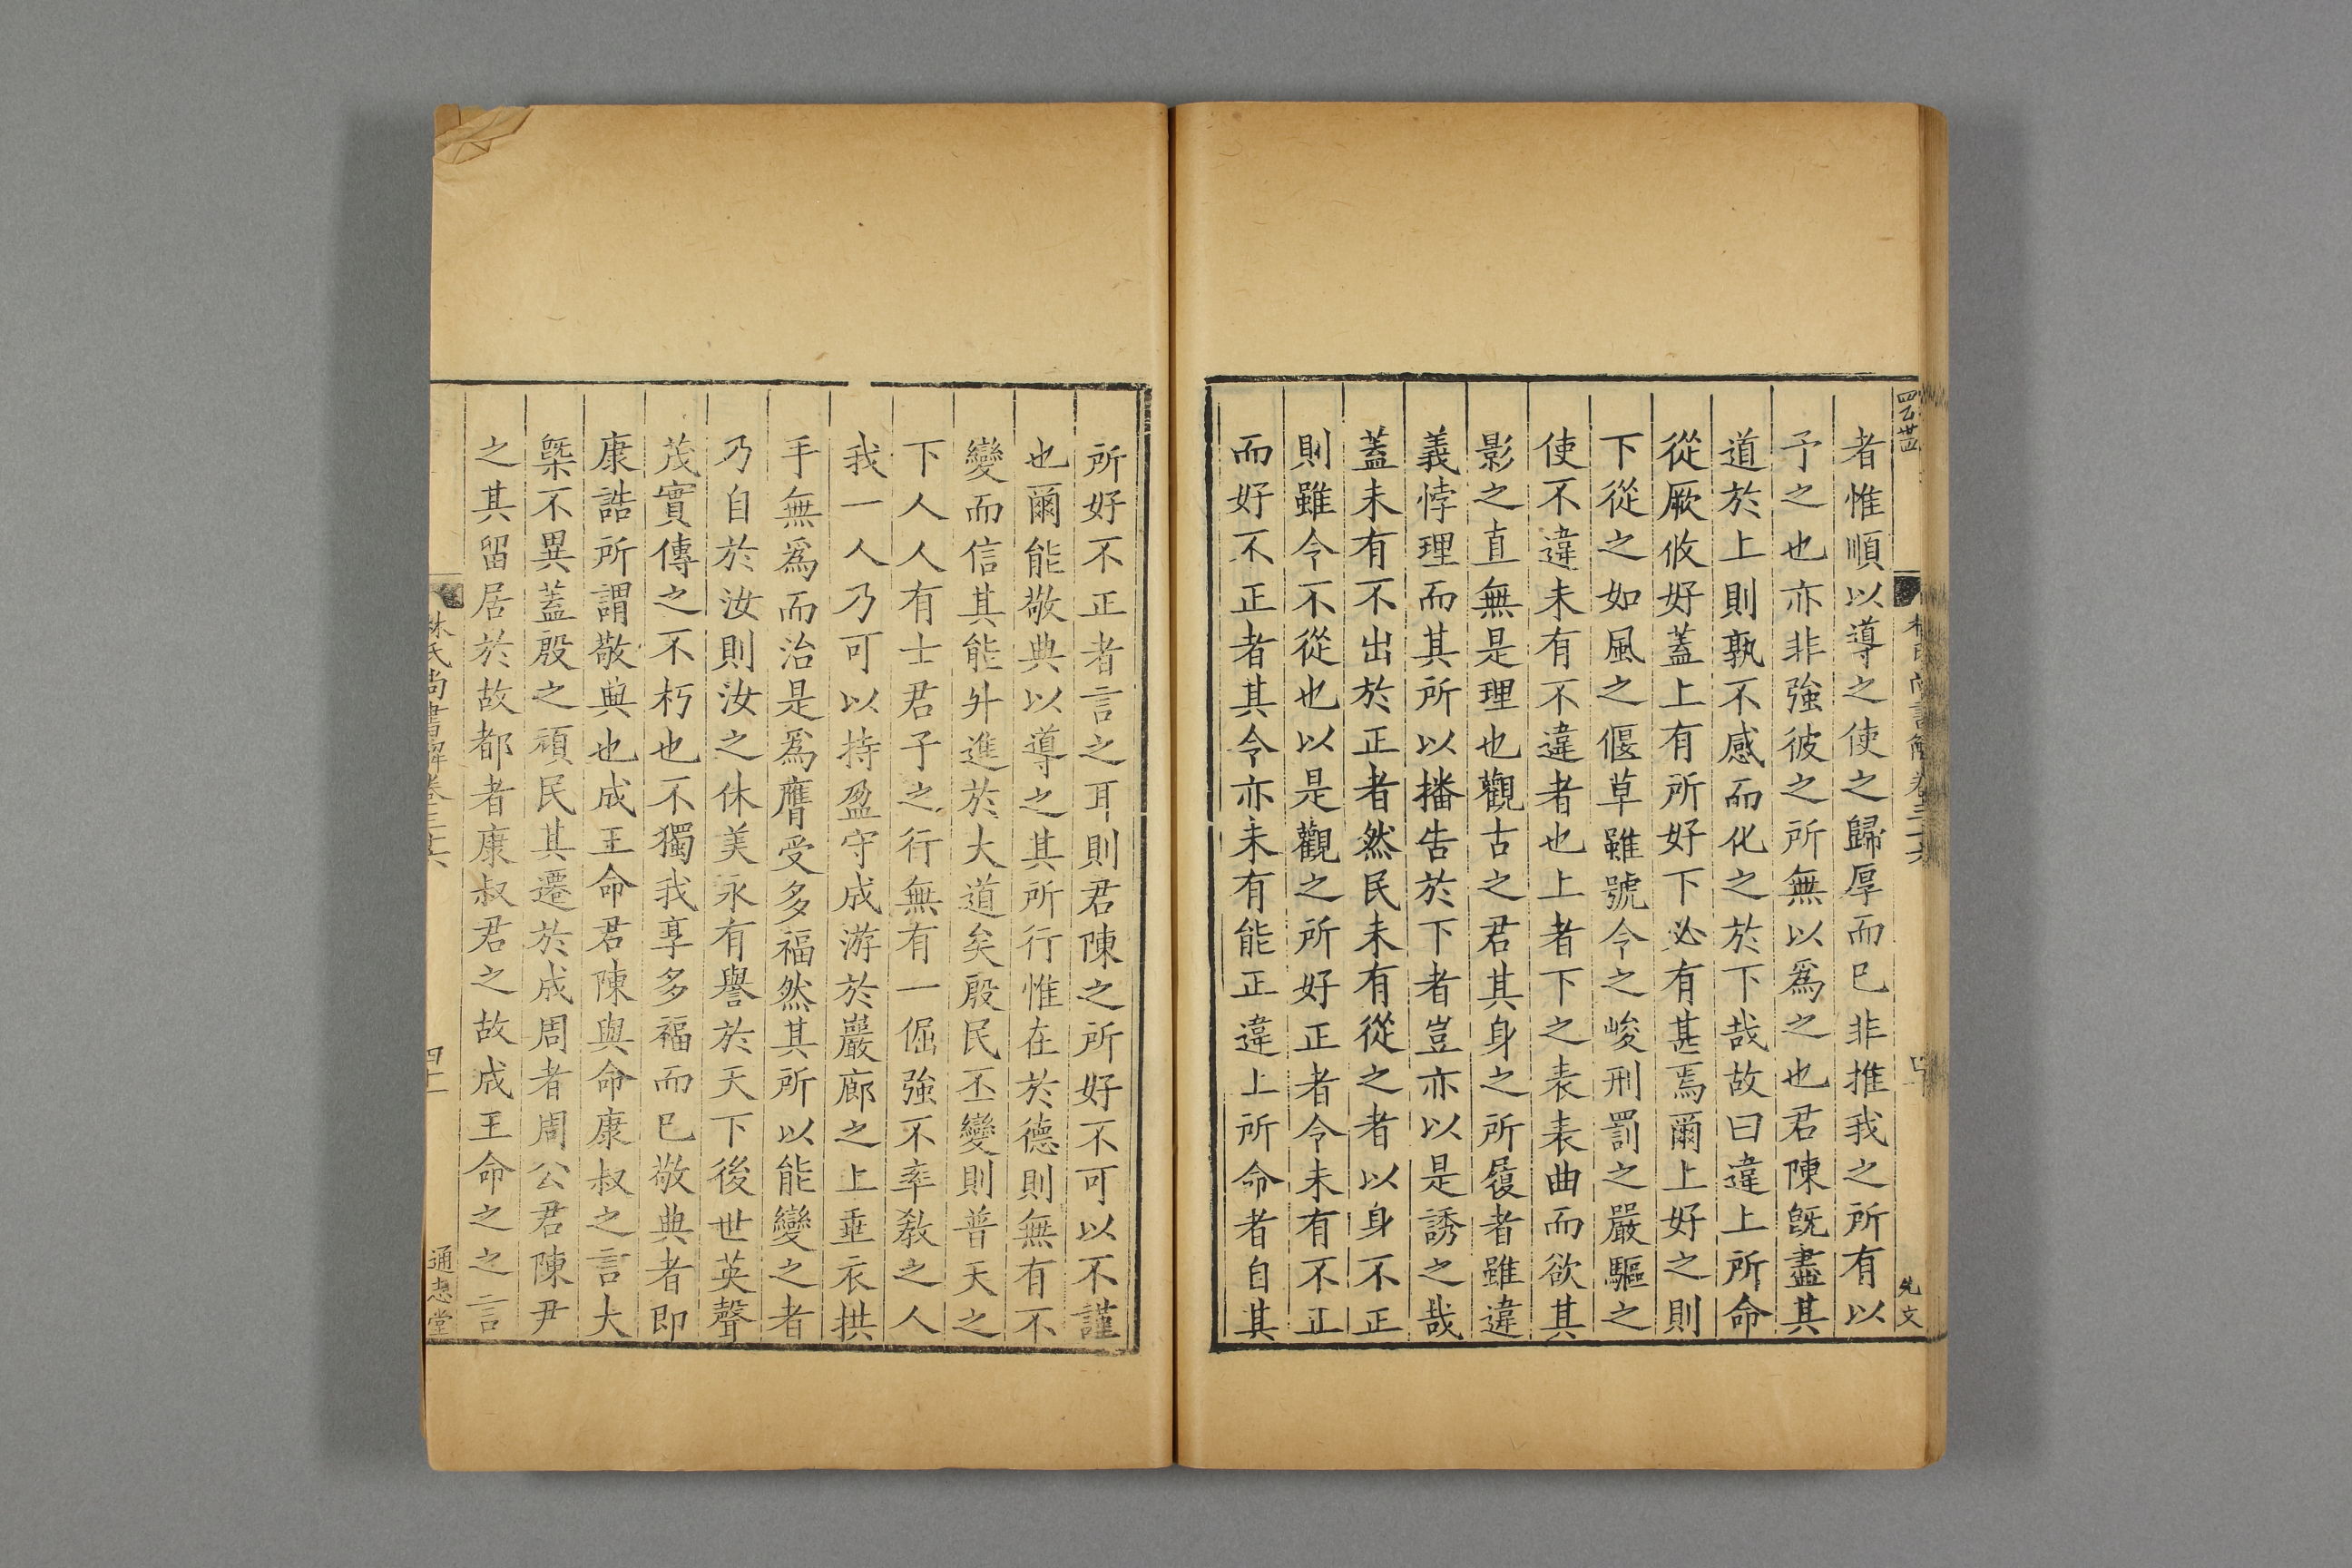 四百卅
者惟順以導之使之歸厚而已非推我之所有以
予之也亦非強彼之所無以爲之也君陳旣盡其
道於上則孰不感而化之於下哉故曰違上所命
從厥攸好蓋上有所好下必有甚焉爾上好之則
下從之如風之偃草雖號令之峻刑罰之嚴驅之
使不違未有不違者也上者下之表表曲而欲其
影之直無是理也觀古之君其身之所履者雖違
義悖理而其所以播告於下者豈亦以是誘之哉
蓋未有不出於正者然民未有從之者以身不正
則雖令不從也以是觀之所好正者令未有不正
而好不正者其令亦未有能正違上所命者自其
先文
所好不正者言之耳則君陳之所好不可以不謹
也爾能敬典以導之其所行惟在於德則無有不
變而信其能升進於大道矣殷民丕變則普天之
下人人有士君子之行無有一倔強不率教之人
我一人乃可以持盈守成游於巖廊之上垂衣拱
手無爲而治是爲膺受多福然其所以能變之者
乃自於汝則汝之休美永有譽於天下後世英聲
茂實傳之不朽也不獨我享多福而已敬典者即
康誥所謂敬典也成王命君陳與命康叔之言大
槩不異蓋殷之頑民其遷於成周者周公君陳尹
之其留居於故都者康叔君之故成王命之之言
林氏尚書解卷三十六
四十一
通志堂